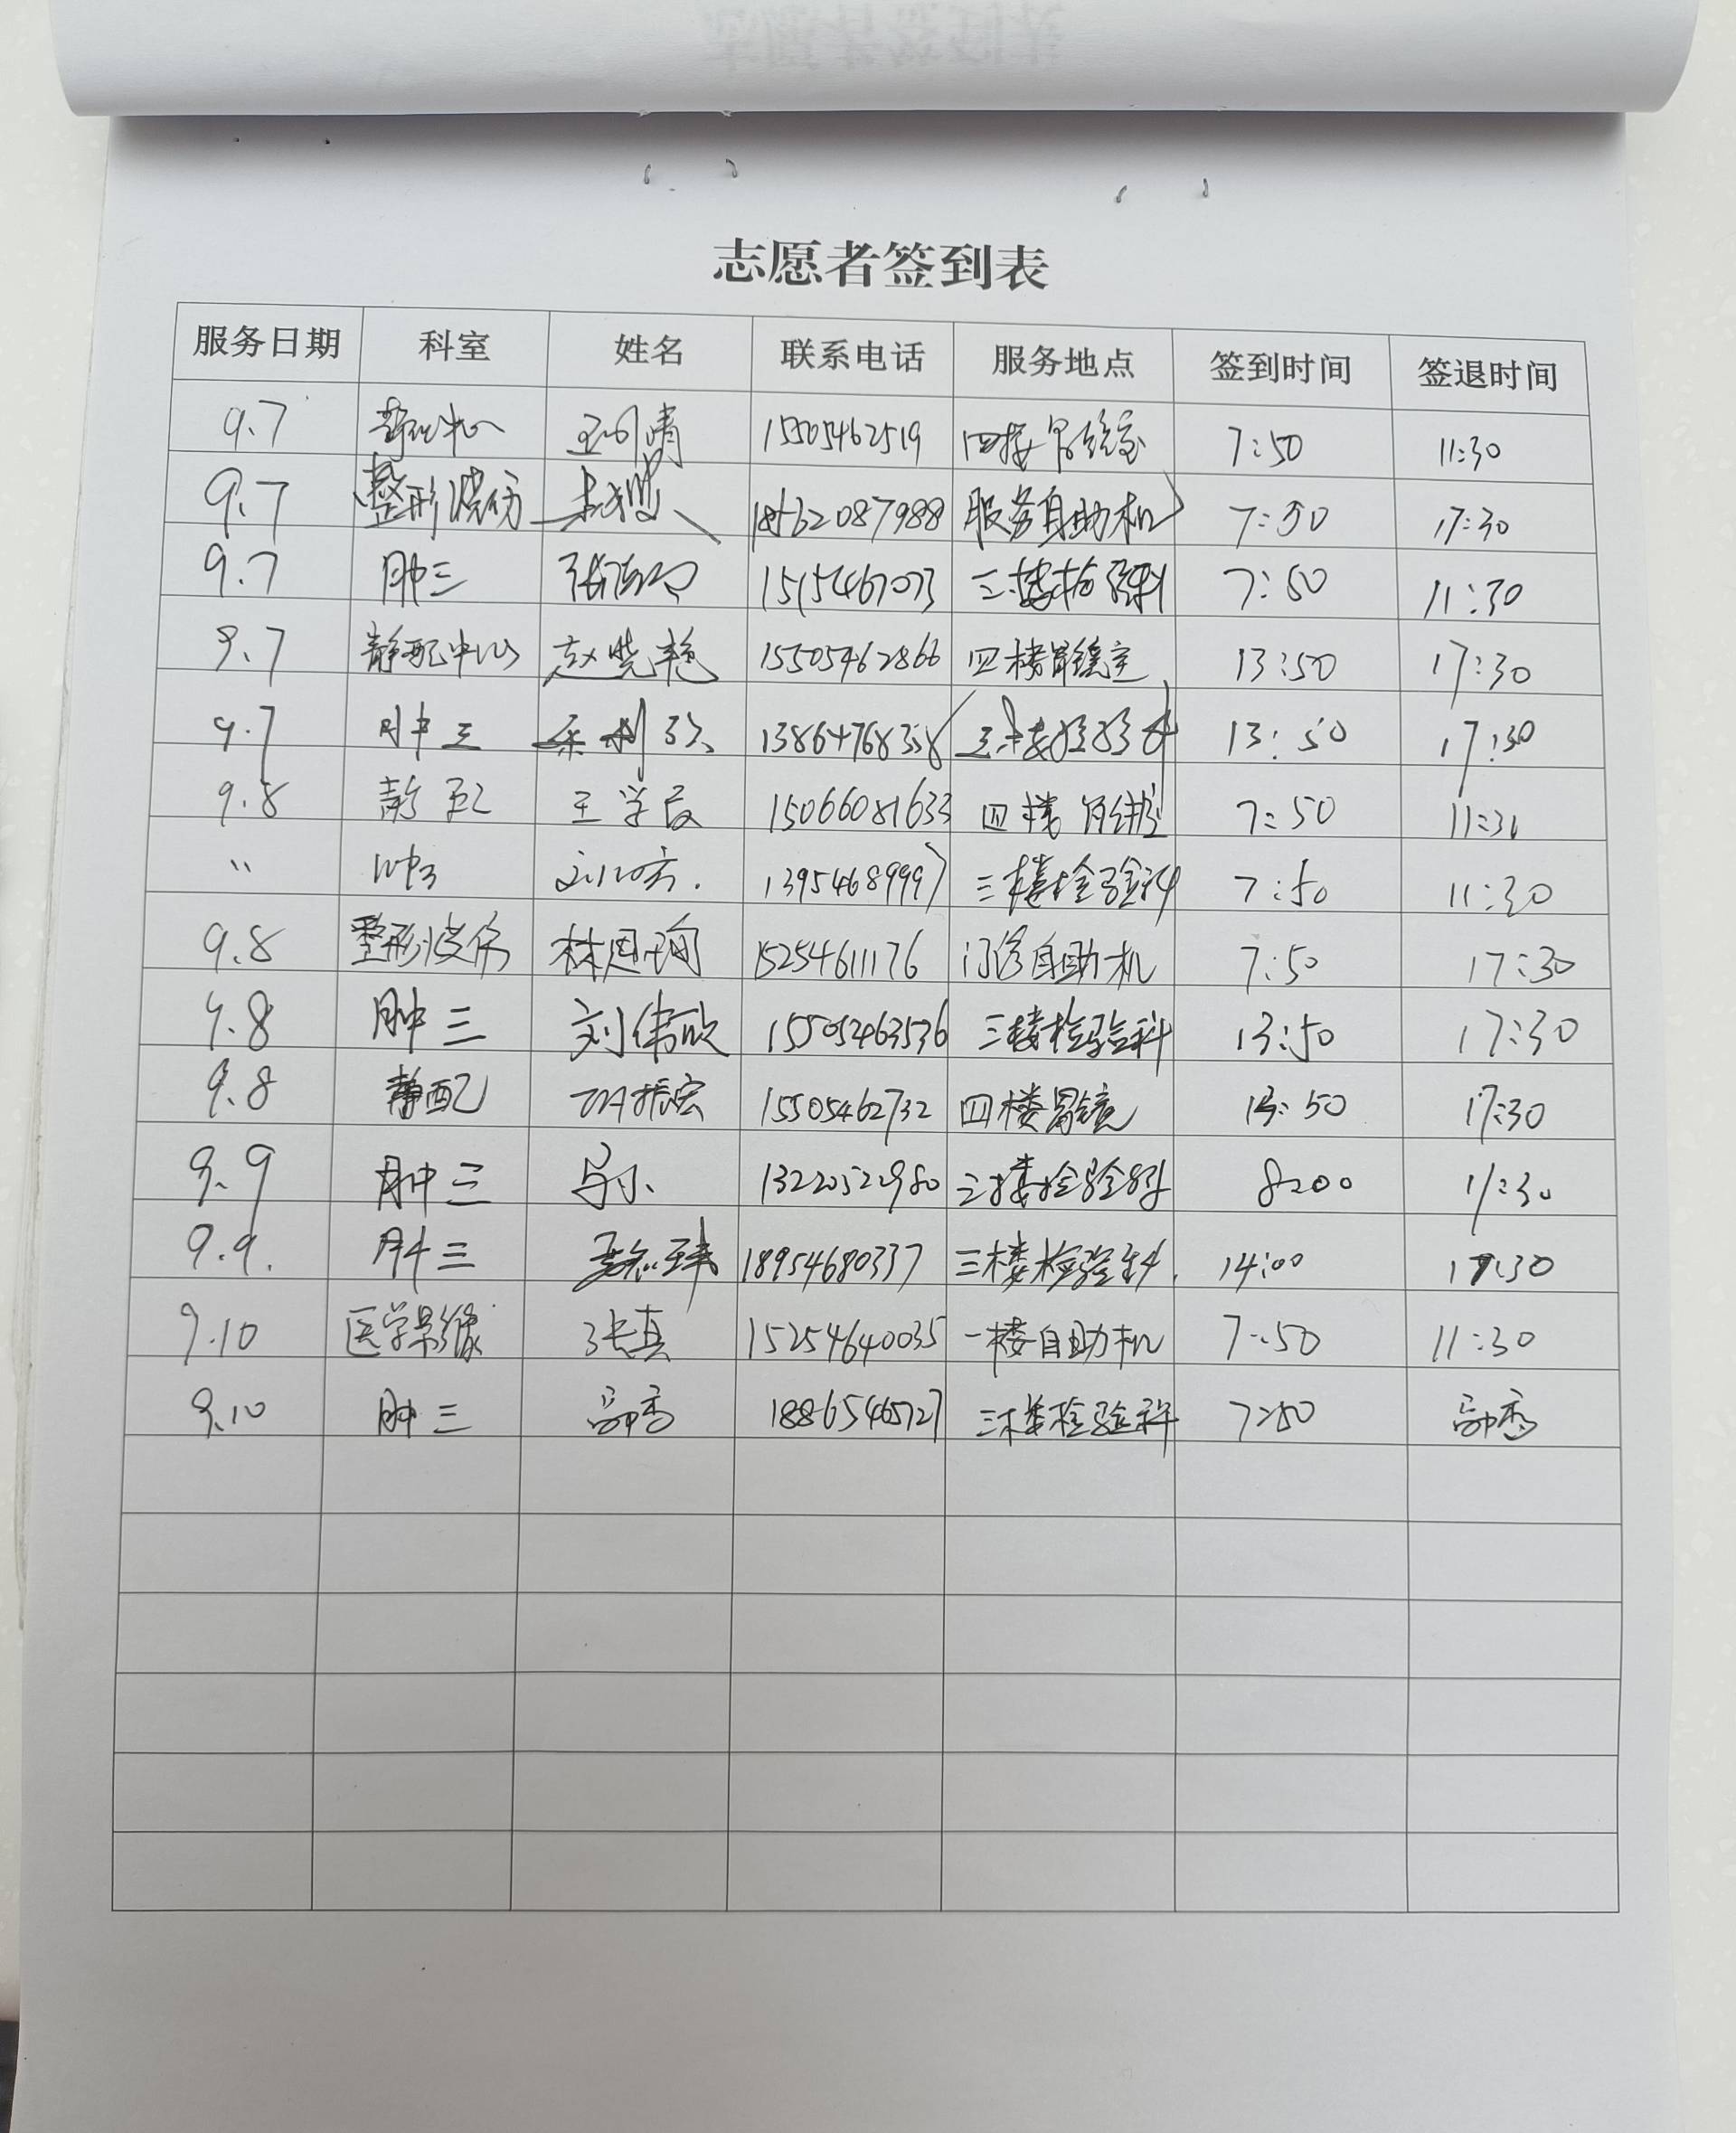 志愿者签到表
服务日期 科室 姓名 联系电话 服务地点 签到时间 签退时间
9.7 15505462519 7:50 11:30
9.7 整形烧伤 18562087988 服务自助机 7:50 17:30
9.7 肿三 三楼检验科 7:50 11:30
9.7 静配中心 赵晓艳 15505462866 四楼胃镜室 13:50 17:30
9.7 肿三 三楼检验科 13:50 17:30
9.8 静配 15066081633 四楼 7:50 11:30
〃 肿3 13954689997 三楼检验科 7:50 11:30
9.8 整形烧伤 15254611176 门诊自助机 7:50 17:30
9.8 肿三 刘伟欣 15505463536 三楼检验科 13:50 17:30
9.8 静配 15505462732 四楼胃镜 13:50 17:30
9.9 肿三 13220522980 三楼检验科 8:00 11:30
9.9. 肿三 18954680337 三楼检验科. 14:00 17:30
9.10 医学影像 张真 15254640035 一楼自助机 7:50 11:30
9.10 肿三 18865465727 三楼检验科 7:50